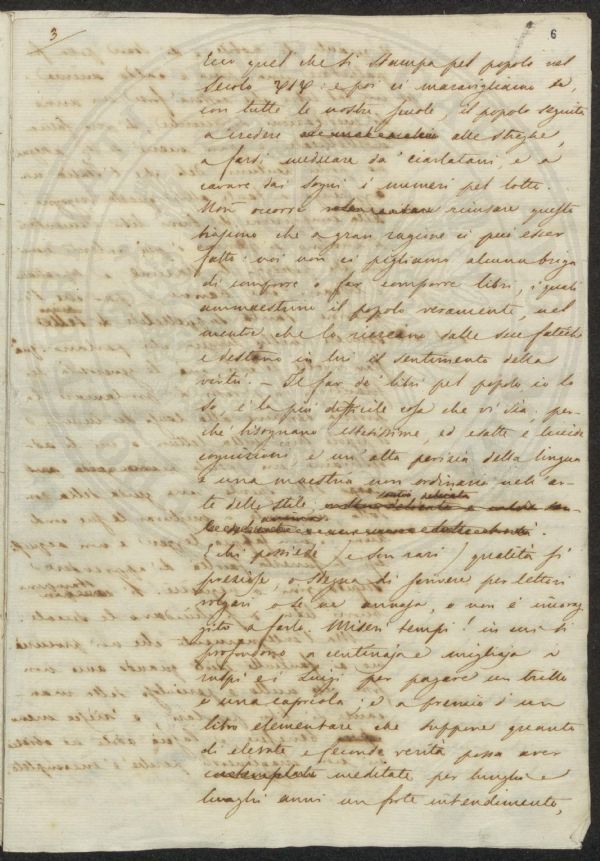 3
6
Ecco quel che si stampa pel popolo nel
secolo XIX: e poi ci maravigliamo se,
con tutte le nostre scuole, il popolo seguita
a credere alle streghe,
a farsi medicare da' ciarlatani, e a
cavare dai sogni i numeri pel lotto.
Non occorre ricusare questo
che a gran ragione ci può esser
fatto: noi non ci pigliamo alcuna briga
di comporre o far comporre libri, i quali
ammaestrino il popolo veramente, nel
mentre che lo ricreano dalle sue fatiche
e destano in lui il sentimento della
virtù. — Il far de' libri pel popolo io lo
so, è la più difficile cosa che vi sia; per-
chè bisognano estesissime, ed esatte e lucide
cognizioni, e un'alta perizia della lingua
e una maestria non ordinaria nell'ar-
te dello stile,
delicata
E chi possiede (e son rari) qualità sì
preziose, o sdegna di scrivere per lettori
volgari, o se ne annoja, o non è incorag-
gito a farlo. Miseri tempi! in cui si
profondono a centinaja e migliaja i
ruspi e i Luigi per pagare un trillo
e una capriola; e a premio d'un
libro elementare che suppone quanto
di elevate e feconde verità possa aver
meditate per lunghi e
lunghi anni un forte intendimento,